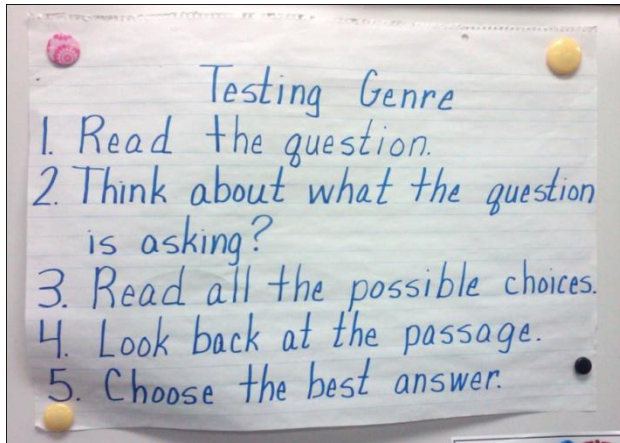 Testing Genre
1. Read the question.
2. Think about what the question
is asking?
3. Read all the possible choices.
4. Look back at the passage.
5. Choose the best answer.